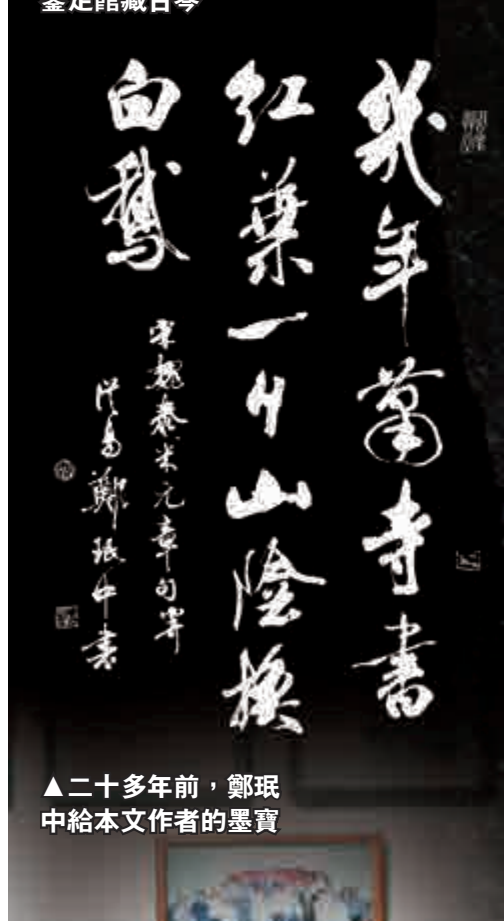 鑒定館藏古琴
幾年蕭寺書
紅葉一日山陰換
白鵝
宋魏泰米元章句寄
鄭珉中書
▲二十多年前，鄭珉
中給本文作者的墨寶